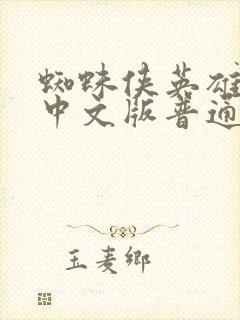 蜘蛛侠英雄
中文版普通
玉麦乡